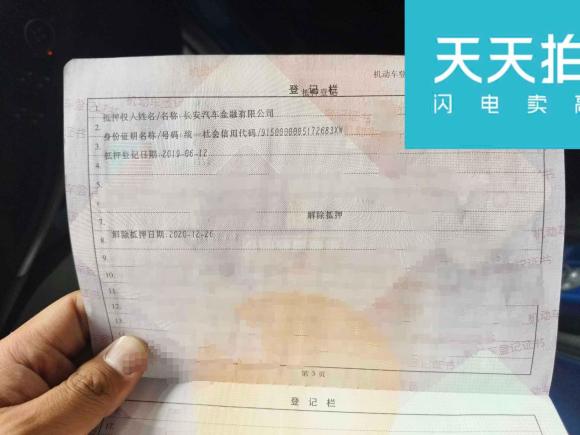 天天拍
闪电卖高
机动车登
登记栏
抵押登记
1.
抵押权人姓名/名称:长安汽车金融有限公司
2.
身份证明名称/号码:统一社会信用代码/915000005172683XW
3.
抵押登记日期:2019-06-12
4.
5.
6.
解除抵押
7.
解除抵押日期:2020-12-26
8.
9.
10.
11.
12.
13.
第 3 页
登记栏